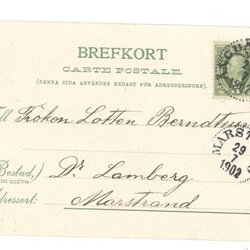 BREFKORT
CARTE POSTALE.
(DENNA SIDA ANVÄNDES ENDAST FÖR ADRESSERINGEN.)
Till Fröken Lotten Berndtson
Dr Lamberg
(Bostad,)
Adressort: Marstrand
MARST
29
7
1902